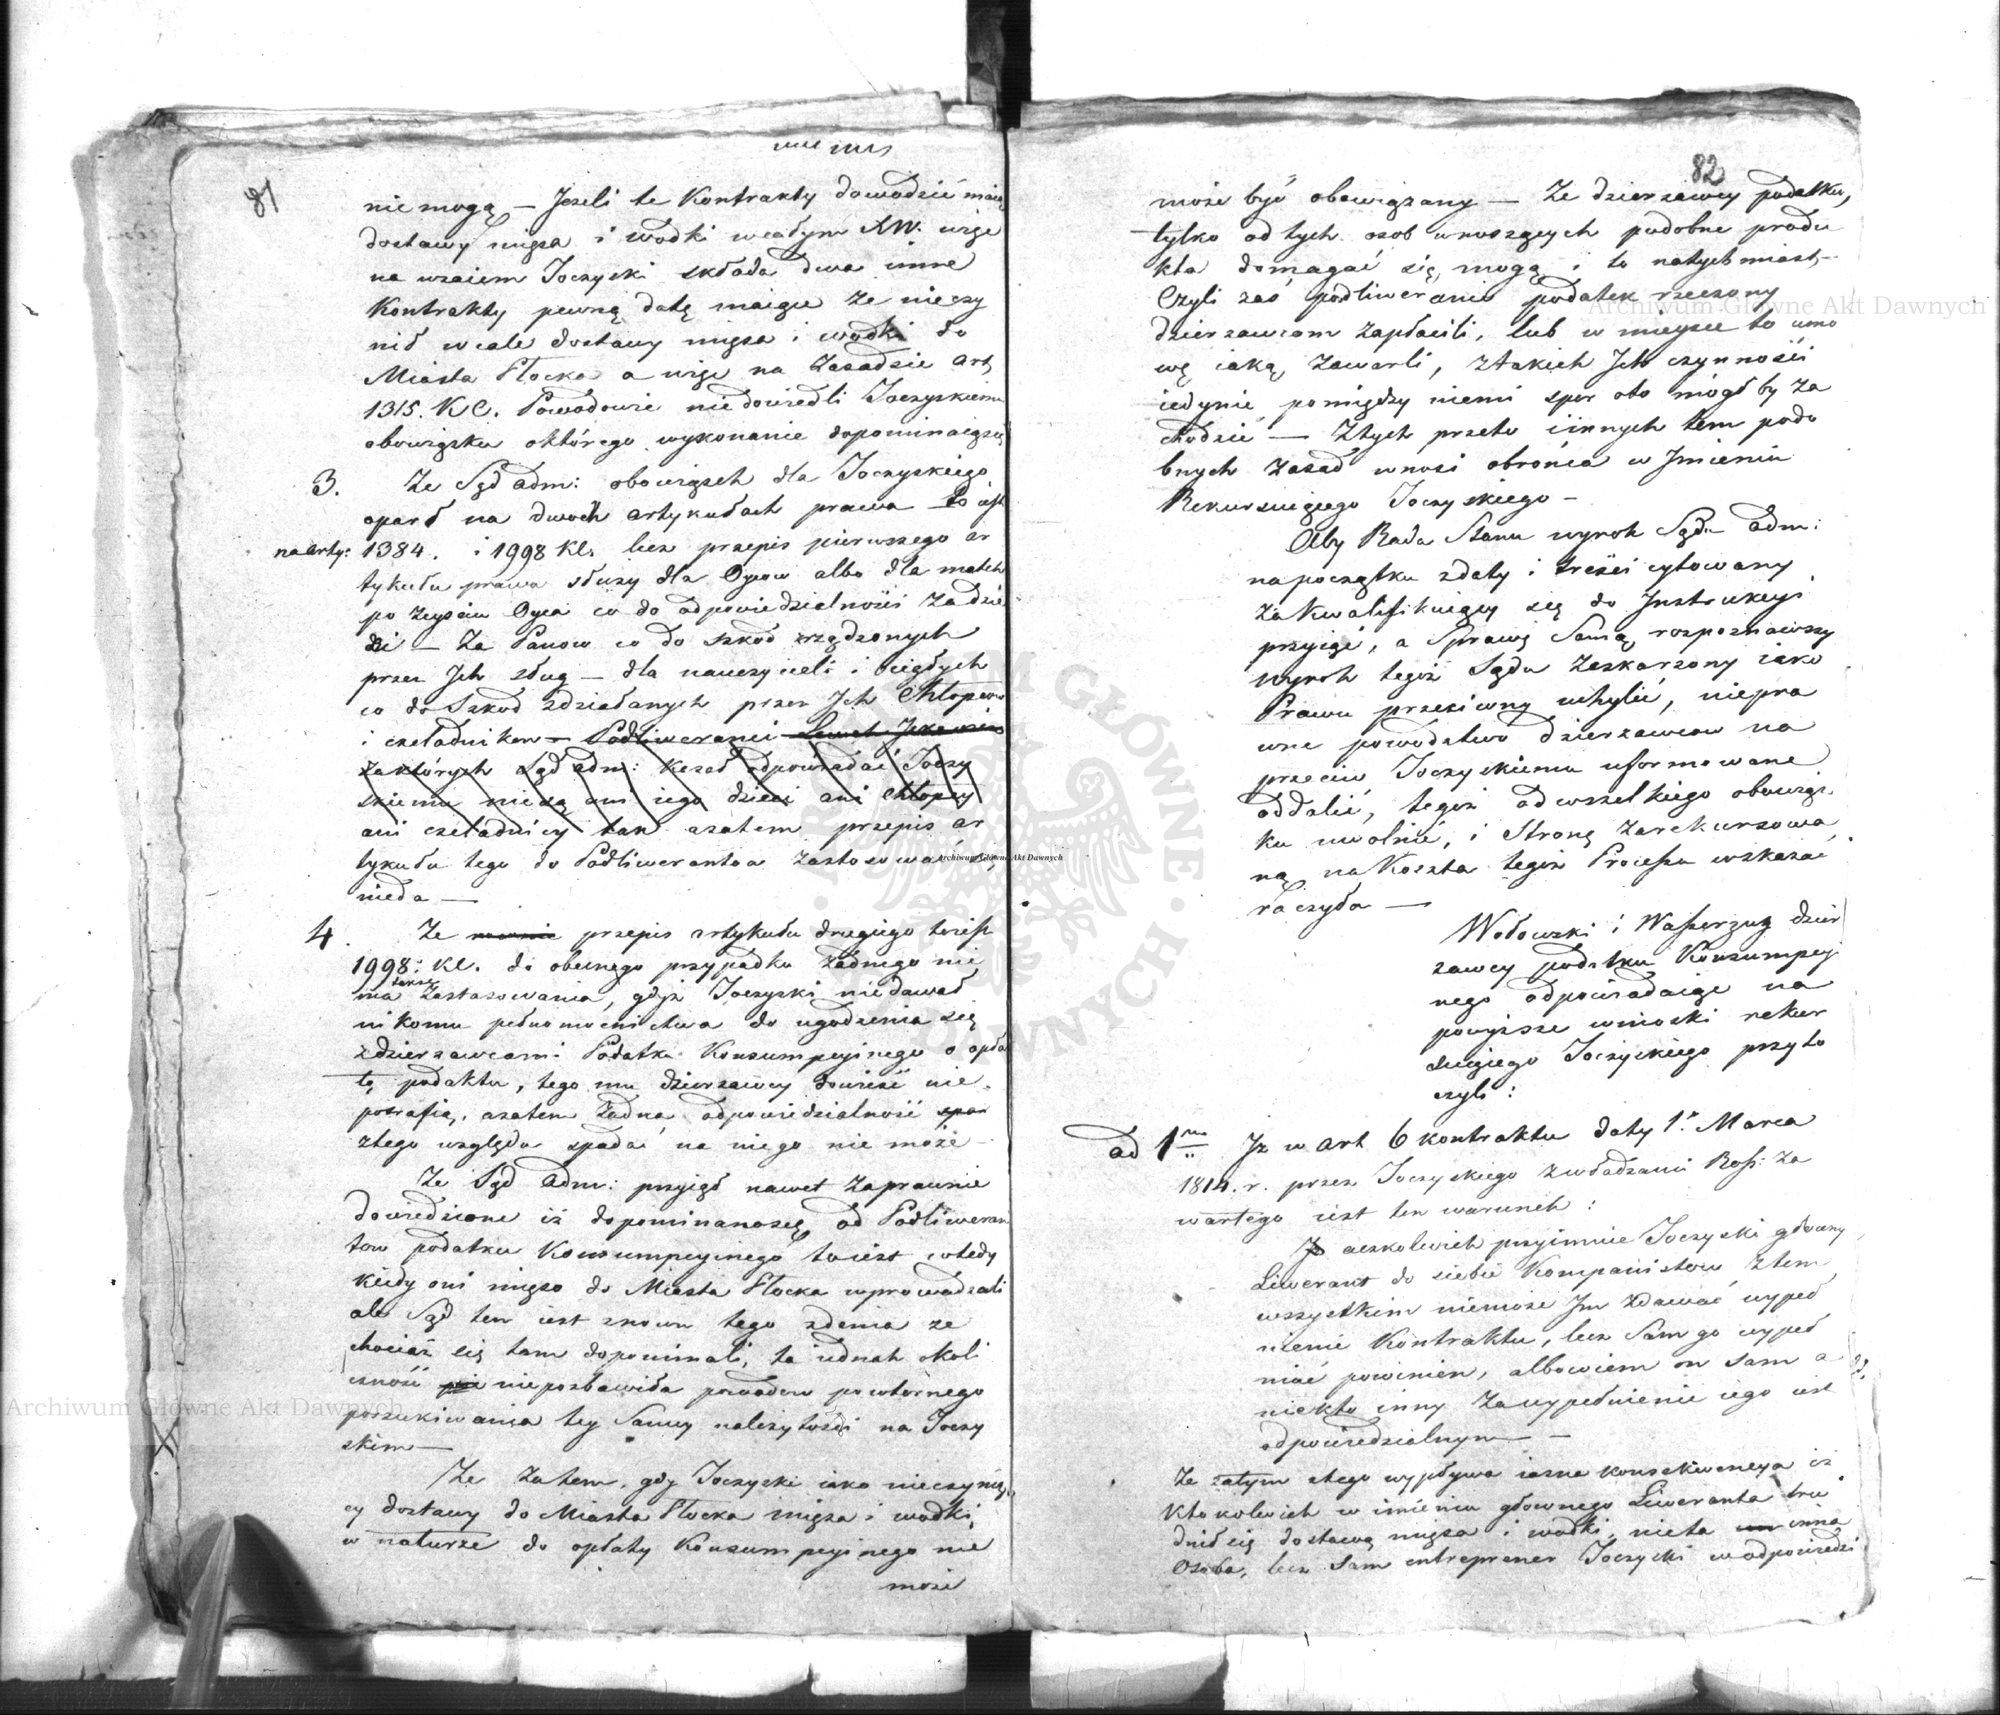 81
nie mogą — Jeżeli te Kontrakty dowodzić maią
dostawy mięsa i wodki w całym XW. więc
na wzaiem Joczyski składa dwa inne
Kontrakty pewną datę maiące że nieczy
nił wcale dostawy mięsa i wodki do
Miasta Płocka a więc na zasadzie art
1315. KC. Powodowie niedowiedli Joczyskiemu
obowiązku którego wykonanie dopominaią się
3. Ze Sąd adm: obowiązek dla Joczyskiego
oparł na dwóch artykułach prawa to iest
na arty: 1384. i 1998 KC. lecz przepis pierwszego ar
tykułu prawa służy dla Oyców albo dla matek
po zeyściu Oyca co do odpowiedzialności za dzie
ci — Za Panow co do szkod zrządzonych
przez Ich sług — dla nauczycieli i
co do Szkod zdziałanych przez Ich Chłopców
i czeladników — Podliweranci
za których Sąd adm: kazał odpowiadać Joczy
skiemu nie są ani iego dzieci ani Chłopcy
ani czeladnicy tak azatem przepis ar
tykułu tego do Podliwerantow zastosować
nieda —
4. Ze przepis artykułu drugiego to iest
1998: KC. do obecnego przypadku żadnego nie
ma także zastosowania, gdyż Joczyski niedawał
nikomu pełnomocnictwa do ugodzenia się
z dzierzawcami Podatku Konsumpcyinego o opła
tę podatku, tego mu dzierzawcy dowieść nie
potrafią, azatem żadna odpowiedzialność
z tego względu spadać na niego nie może —
Ze Sąd Adm: przyiął nawet za prawnie
dowiedzione iż dopominano się od Podliweran
tow podatku Konsumpcyinego to iest wtedy
kiedy oni mięso do Miasta Płocka wprowadzali
ale Sąd ten iest znowu tego zdania że
chociaż się tam dopominali, ta iednak okoli
czność niepozbawiła powodow powtórnego
poszukiwania tey Samey należytości na Joczy
skim —
Ze Zatem, gdy Joczyski iako nieczynią
cy dostawy do Miasta Płocka mięsa i wodki
w naturze do opłaty Konsumpcyinego nie
może
82
może być obowiązany — Ze dzierzawcy podatku,
tylko od tych osob wnoszących podobne produ
kta domagać się mogą i to natychmiast,—
Czyli zaś podliweranci podatek rzeczony
dzierzawcom zapłacili, lub w mieysce to umo
wę iaką zawarli, z takich Ich czynności
iedynie pomiędzy niemi spor oto mógł by za
chodzić — Ztych przeto i innych tem podo
bnych zasad wnosi obrońca w Imieniu
Rekursuiącego Joczyskiego —
Aby Rada Stanu wyrok Sądu adm:
na początku z daty i treści cytowany
za kwalifikuiący się do Instrukcyi
przyiąć, a Sprawę Samą rozpoznawszy
wyrok tegoż Sądu zaskarżony iako
Prawu przeciwny uchylić, niepra
wne powodztwo dzierzawcow na
przeciw Joczyskiemu uformowane
oddalić, tegoż od wszelkiego obowiąz
ku uwolnić, i Stronę zarekursowa
ną na Koszta tegoż Processu wskazać
raczyła —
Wołowski i Wasserzug dzier
zawcy podatku Konsumpcyi
nego odpowiadaiąc na
powyższe wnioski rekur
suiącego Joczyskiego przyto
czyli:
ad 1mo Iż w art 6 kontraktu daty 1. Marca
1814. r. przez Joczyskiego z władzami Ross: za
wartego iest ten warunek:
Iż aczkolwiek przyimuie Joczyski główny
Liwerant do siebie Kompanistow ztem
wszystkim niemoże Im zdawać wypeł
nienie Kontraktu, lecz Sam go wypeł
niać powinien, albowiem on sam a
niekto inny za wypełnienie iego iest
odpowiedzialnym —
Ze zatym z tego wypływa iasna konsekwencya iż
ktokolwiek w imieniu głównego Liweranta tru
dnił się dostawą mięsa i wodki, nieta inna
Osoba, lecz Sam entreprener Joczycki w odpowiedzi